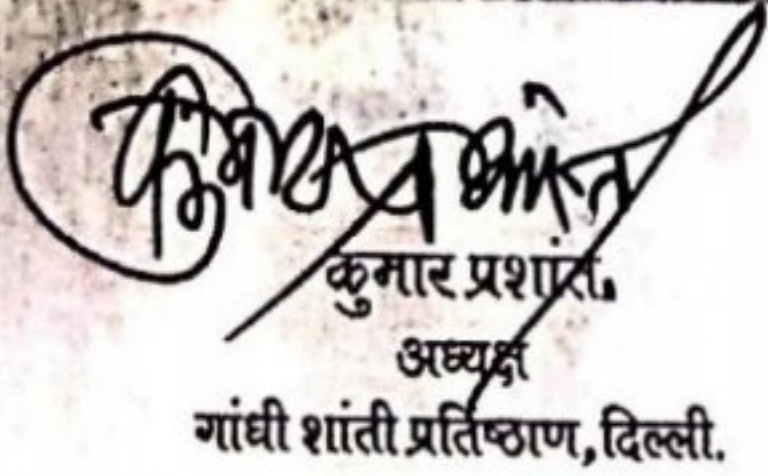 कुमार प्रशांत
कुमार प्रशांत.
अध्यक्ष
गांधी शांती प्रतिष्ठाण, दिल्ली.